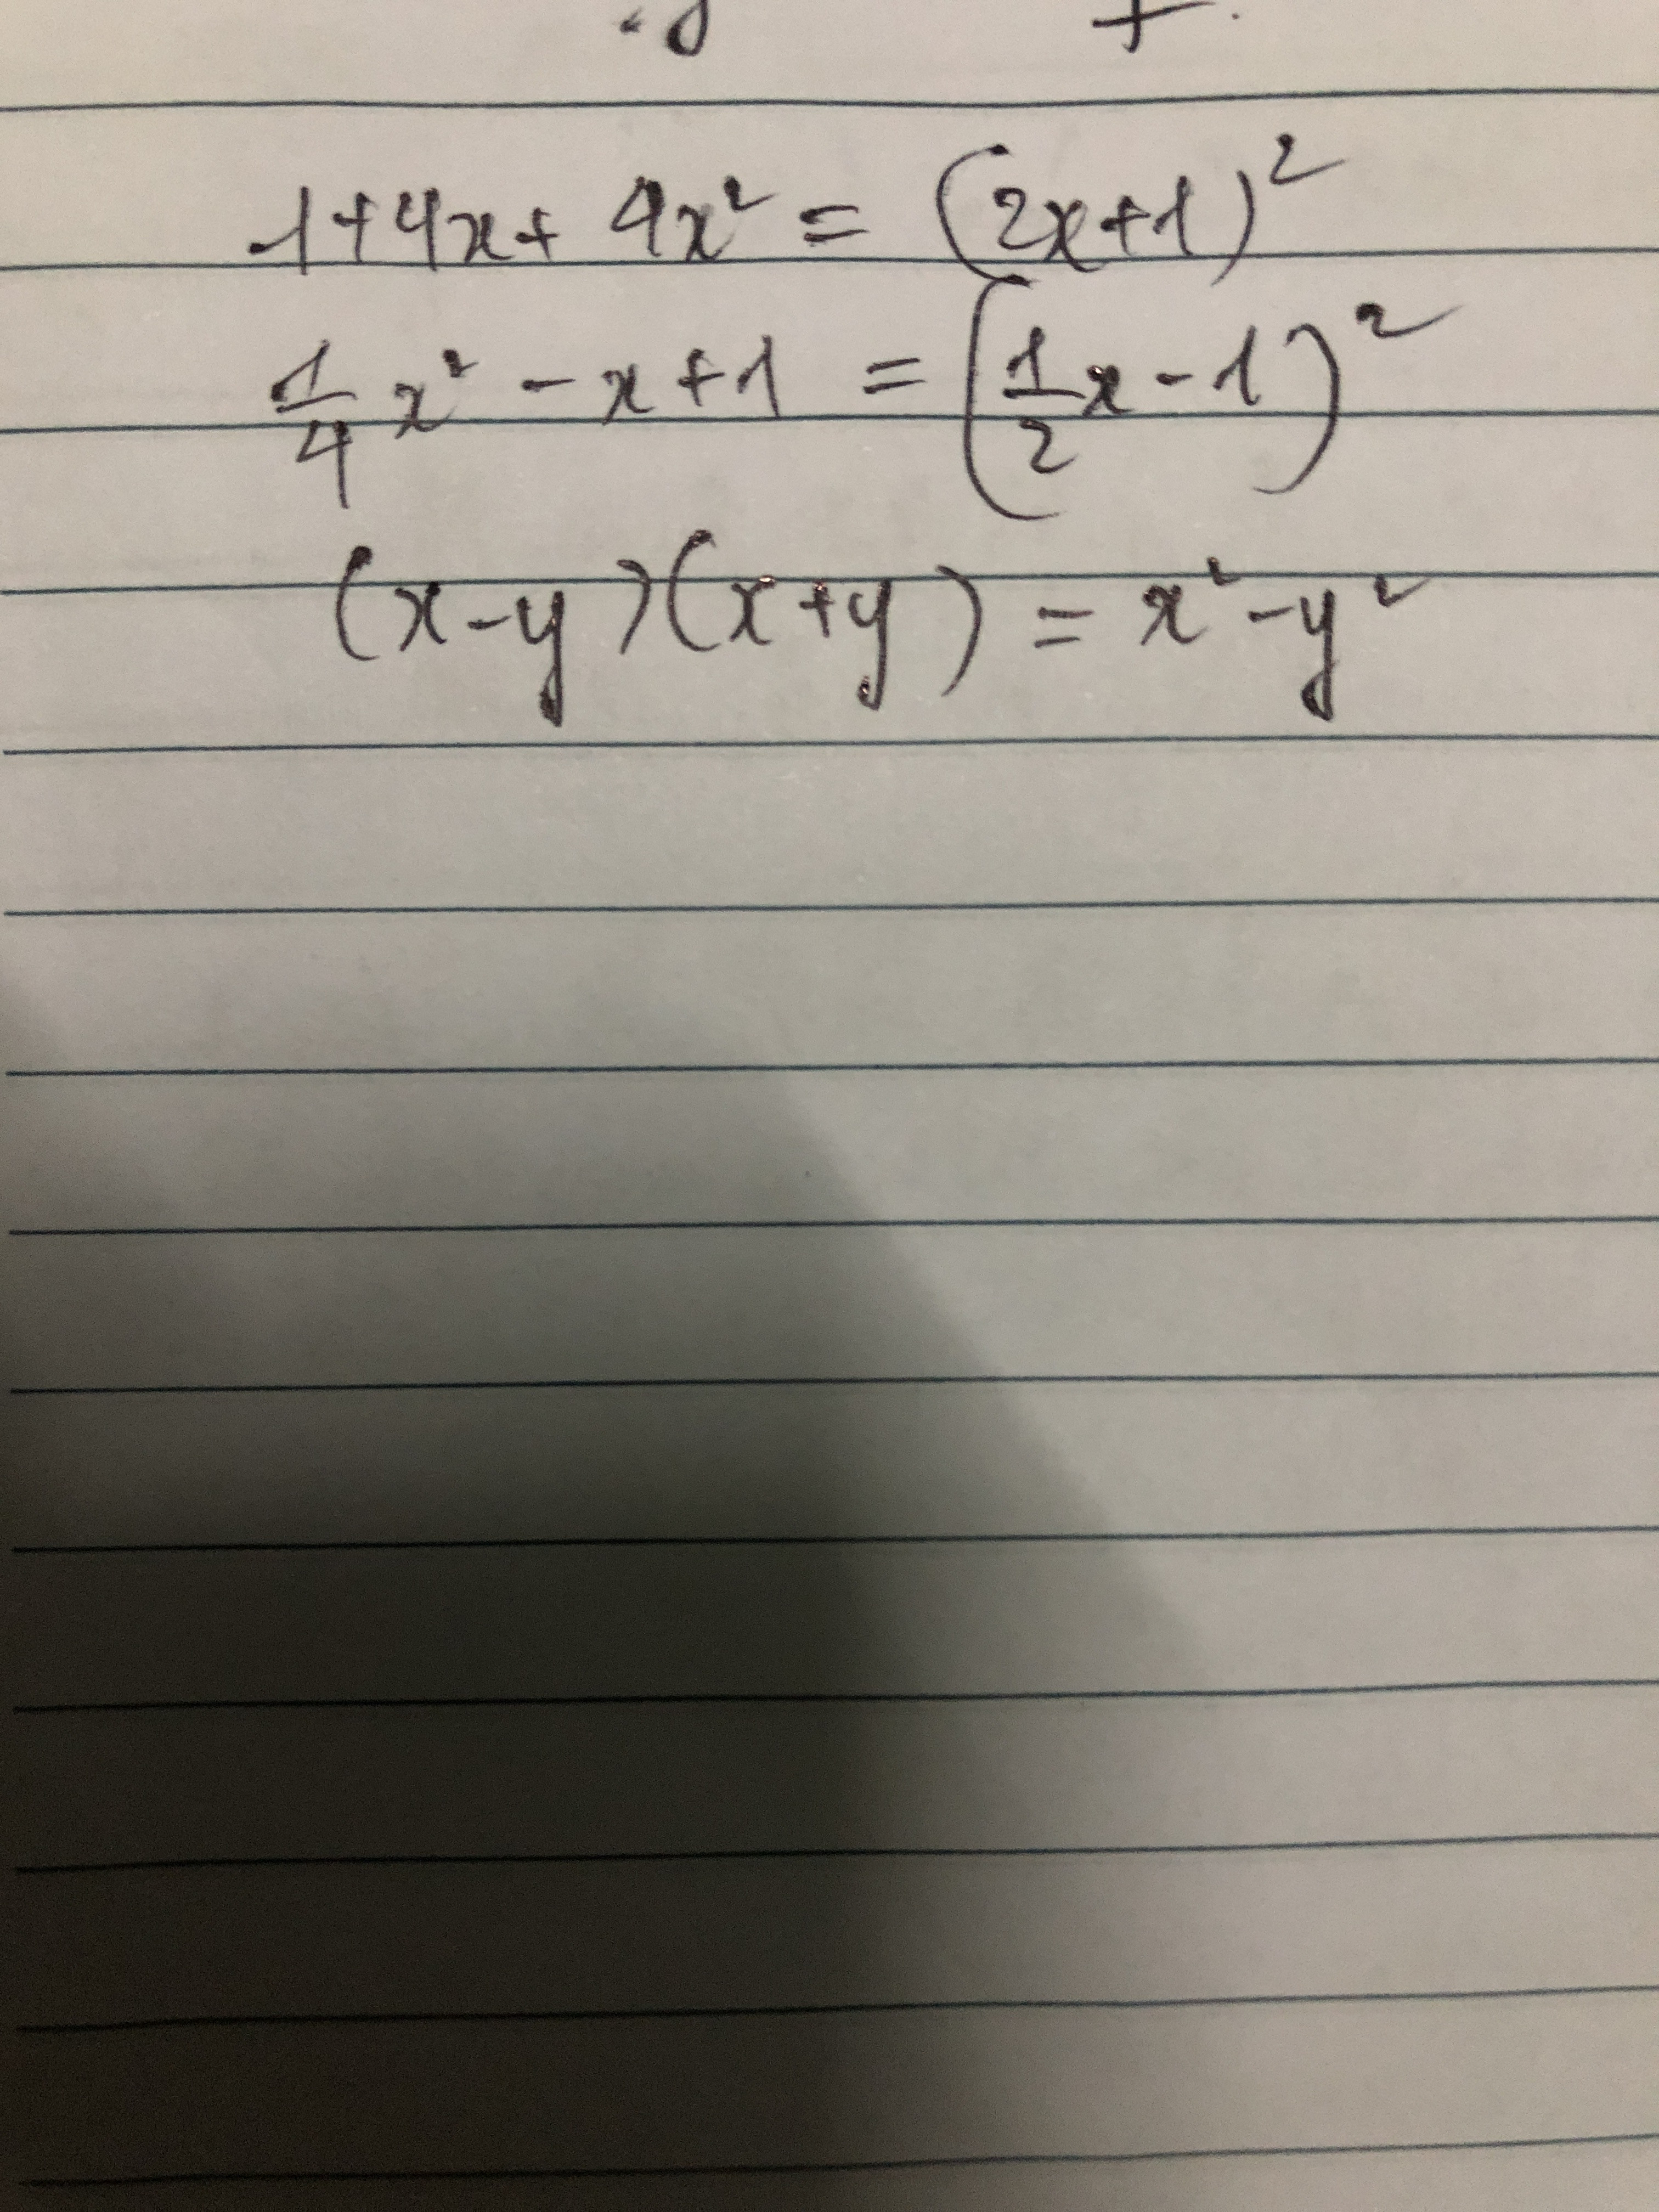 1+4x+4x² = (2x+1)²
1/4 x² - x + 1 = (1/2 x - 1)²
(x-y)(x+y) = x² - y²